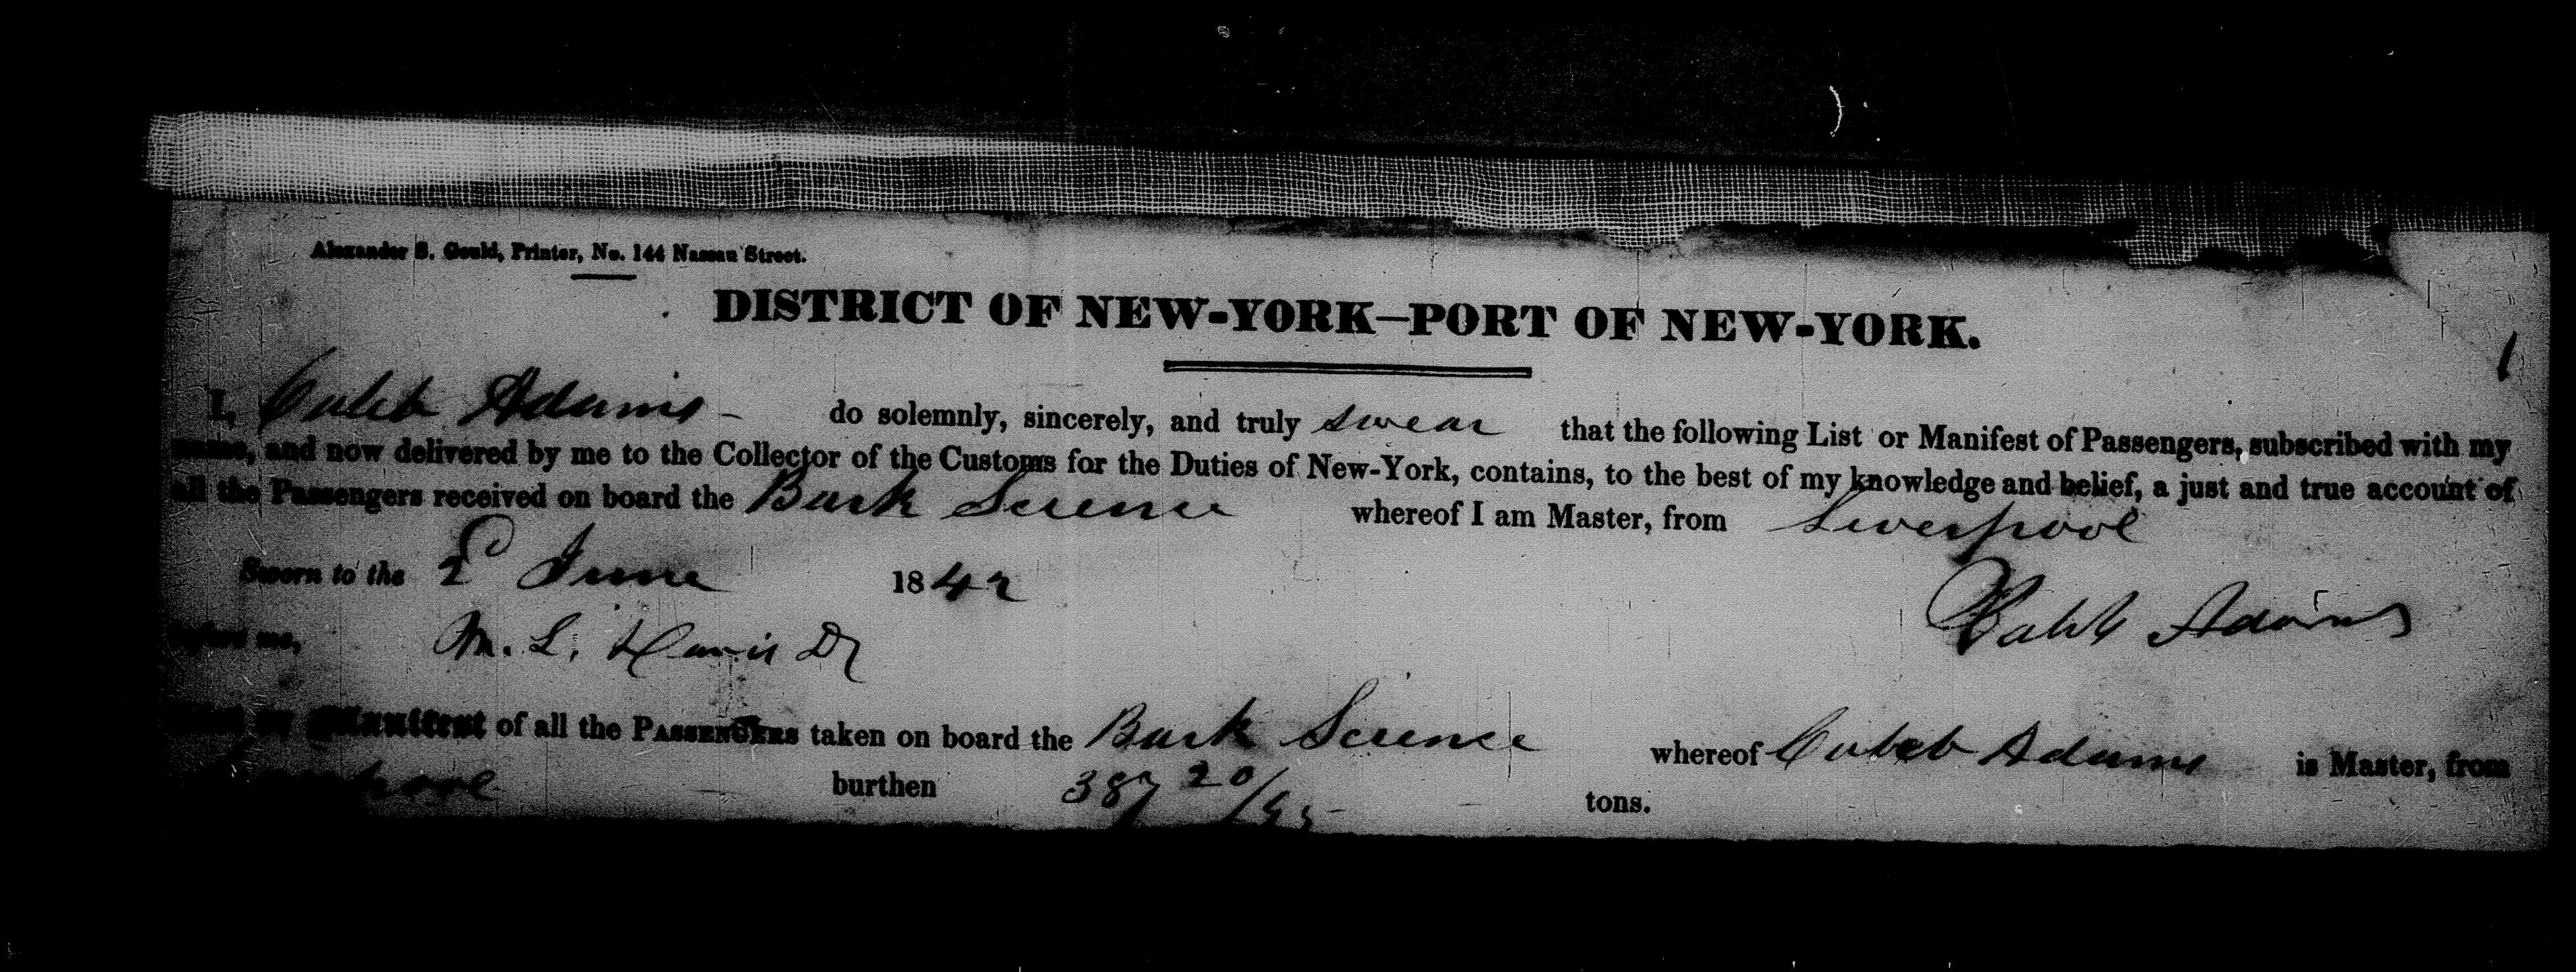 Alexander S. Gould, Printer, No. 144 Nassau Street.
DISTRICT OF NEW-YORK—PORT OF NEW-YORK.
1
I, Caleb Adams - do solemnly, sincerely, and truly swear that the following List or Manifest of Passengers, subscribed with my
name, and now delivered by me to the Collector of the Customs for the Duties of New-York, contains, to the best of my knowledge and belief, a just and true account of
all the Passengers received on board the Bark Science whereof I am Master, from Liverpool
Sworn to the 2d June 1842
Caleb Adams
before me, M. L. Davis
or Manifest of all the PASSENGERS taken on board the Bark Science whereof Caleb Adams is Master, from
burthen 387 20/95 tons.